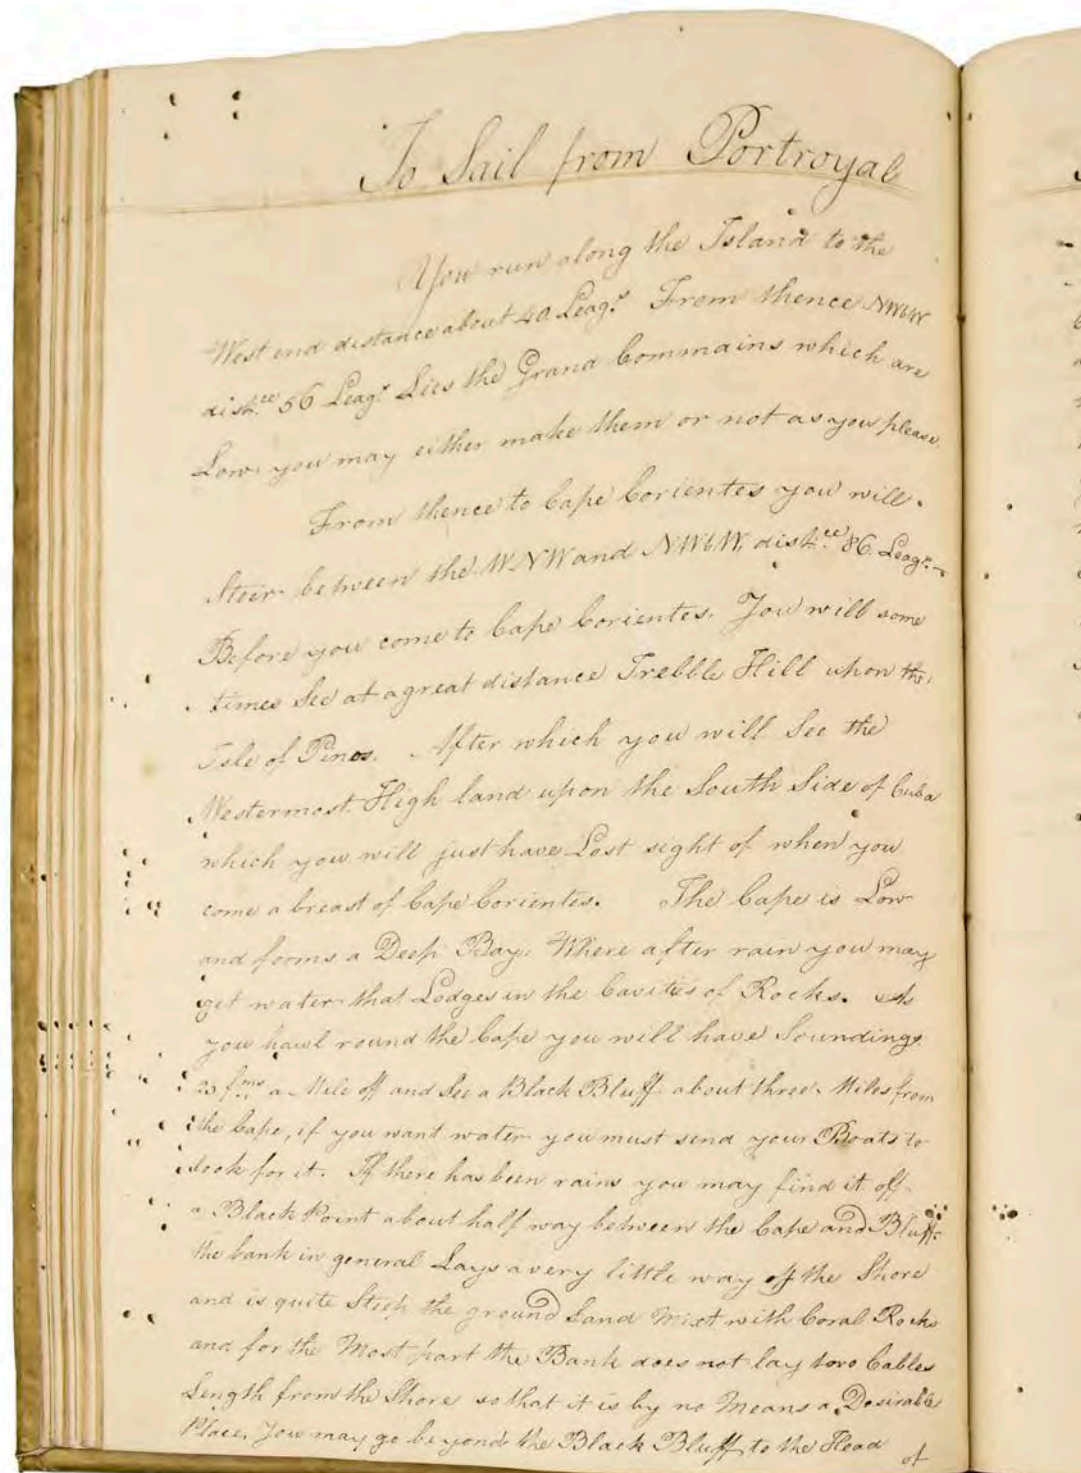 To Sail from Portroyal
You run along the Island to the
West end distance about 40 Leagˢ From thence NWbW
distᶜᵉ 56 Leagˢ Lies the Grand Commains which are
Low. you may either make them or not as you please.
From thence to Cape Corientes you will.
Steir between the WNW and NWbW, distᶜᵉ 86. Leagˢ.-
Before you come to Cape Corientes. You will some
times See at a great distance Trebble Hill upon the,
Isle of Pines. After which you will See the
Westermost. High land upon the South Side of Cuba
which you will just have Lost sight of when you
come a breast of Cape Corientes. The Cape is Low
and fooms a Deep Bay. Where after rain you may
get water that Lodges in the Cavities of Rocks. As
you hawl round the Cape you will have Soundings
23 fᵐˢ a Mile off and See a Black Bluff about three Miles from
the Cape, if you want water you must send your Boats to
look for it. If there has been rains you may find it off
a Black Point about half way between the Cape and Bluff:
the bank in general Lays a very little way off the Shore
and is quite Steep the ground Sand Mixt with Coral Rocks
and for the Most part the Bank does not lay two Cables
Length from the Shore so that it is by no Means a Desirable
Place. You may go beyond the Black Bluff to the Head
of